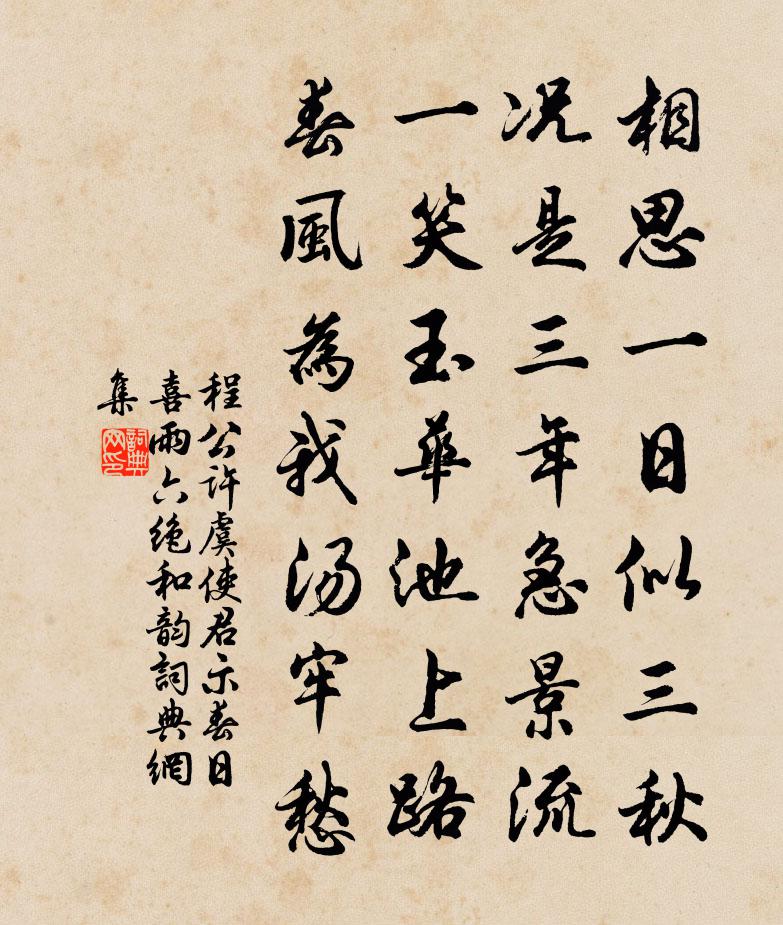 相思一日似三秋
况是三年急景流
一笑玉華池上路
春風為我湯牢愁
程公許虞使君示春日
喜雨六絶和韵詞典網
集
詞典網印